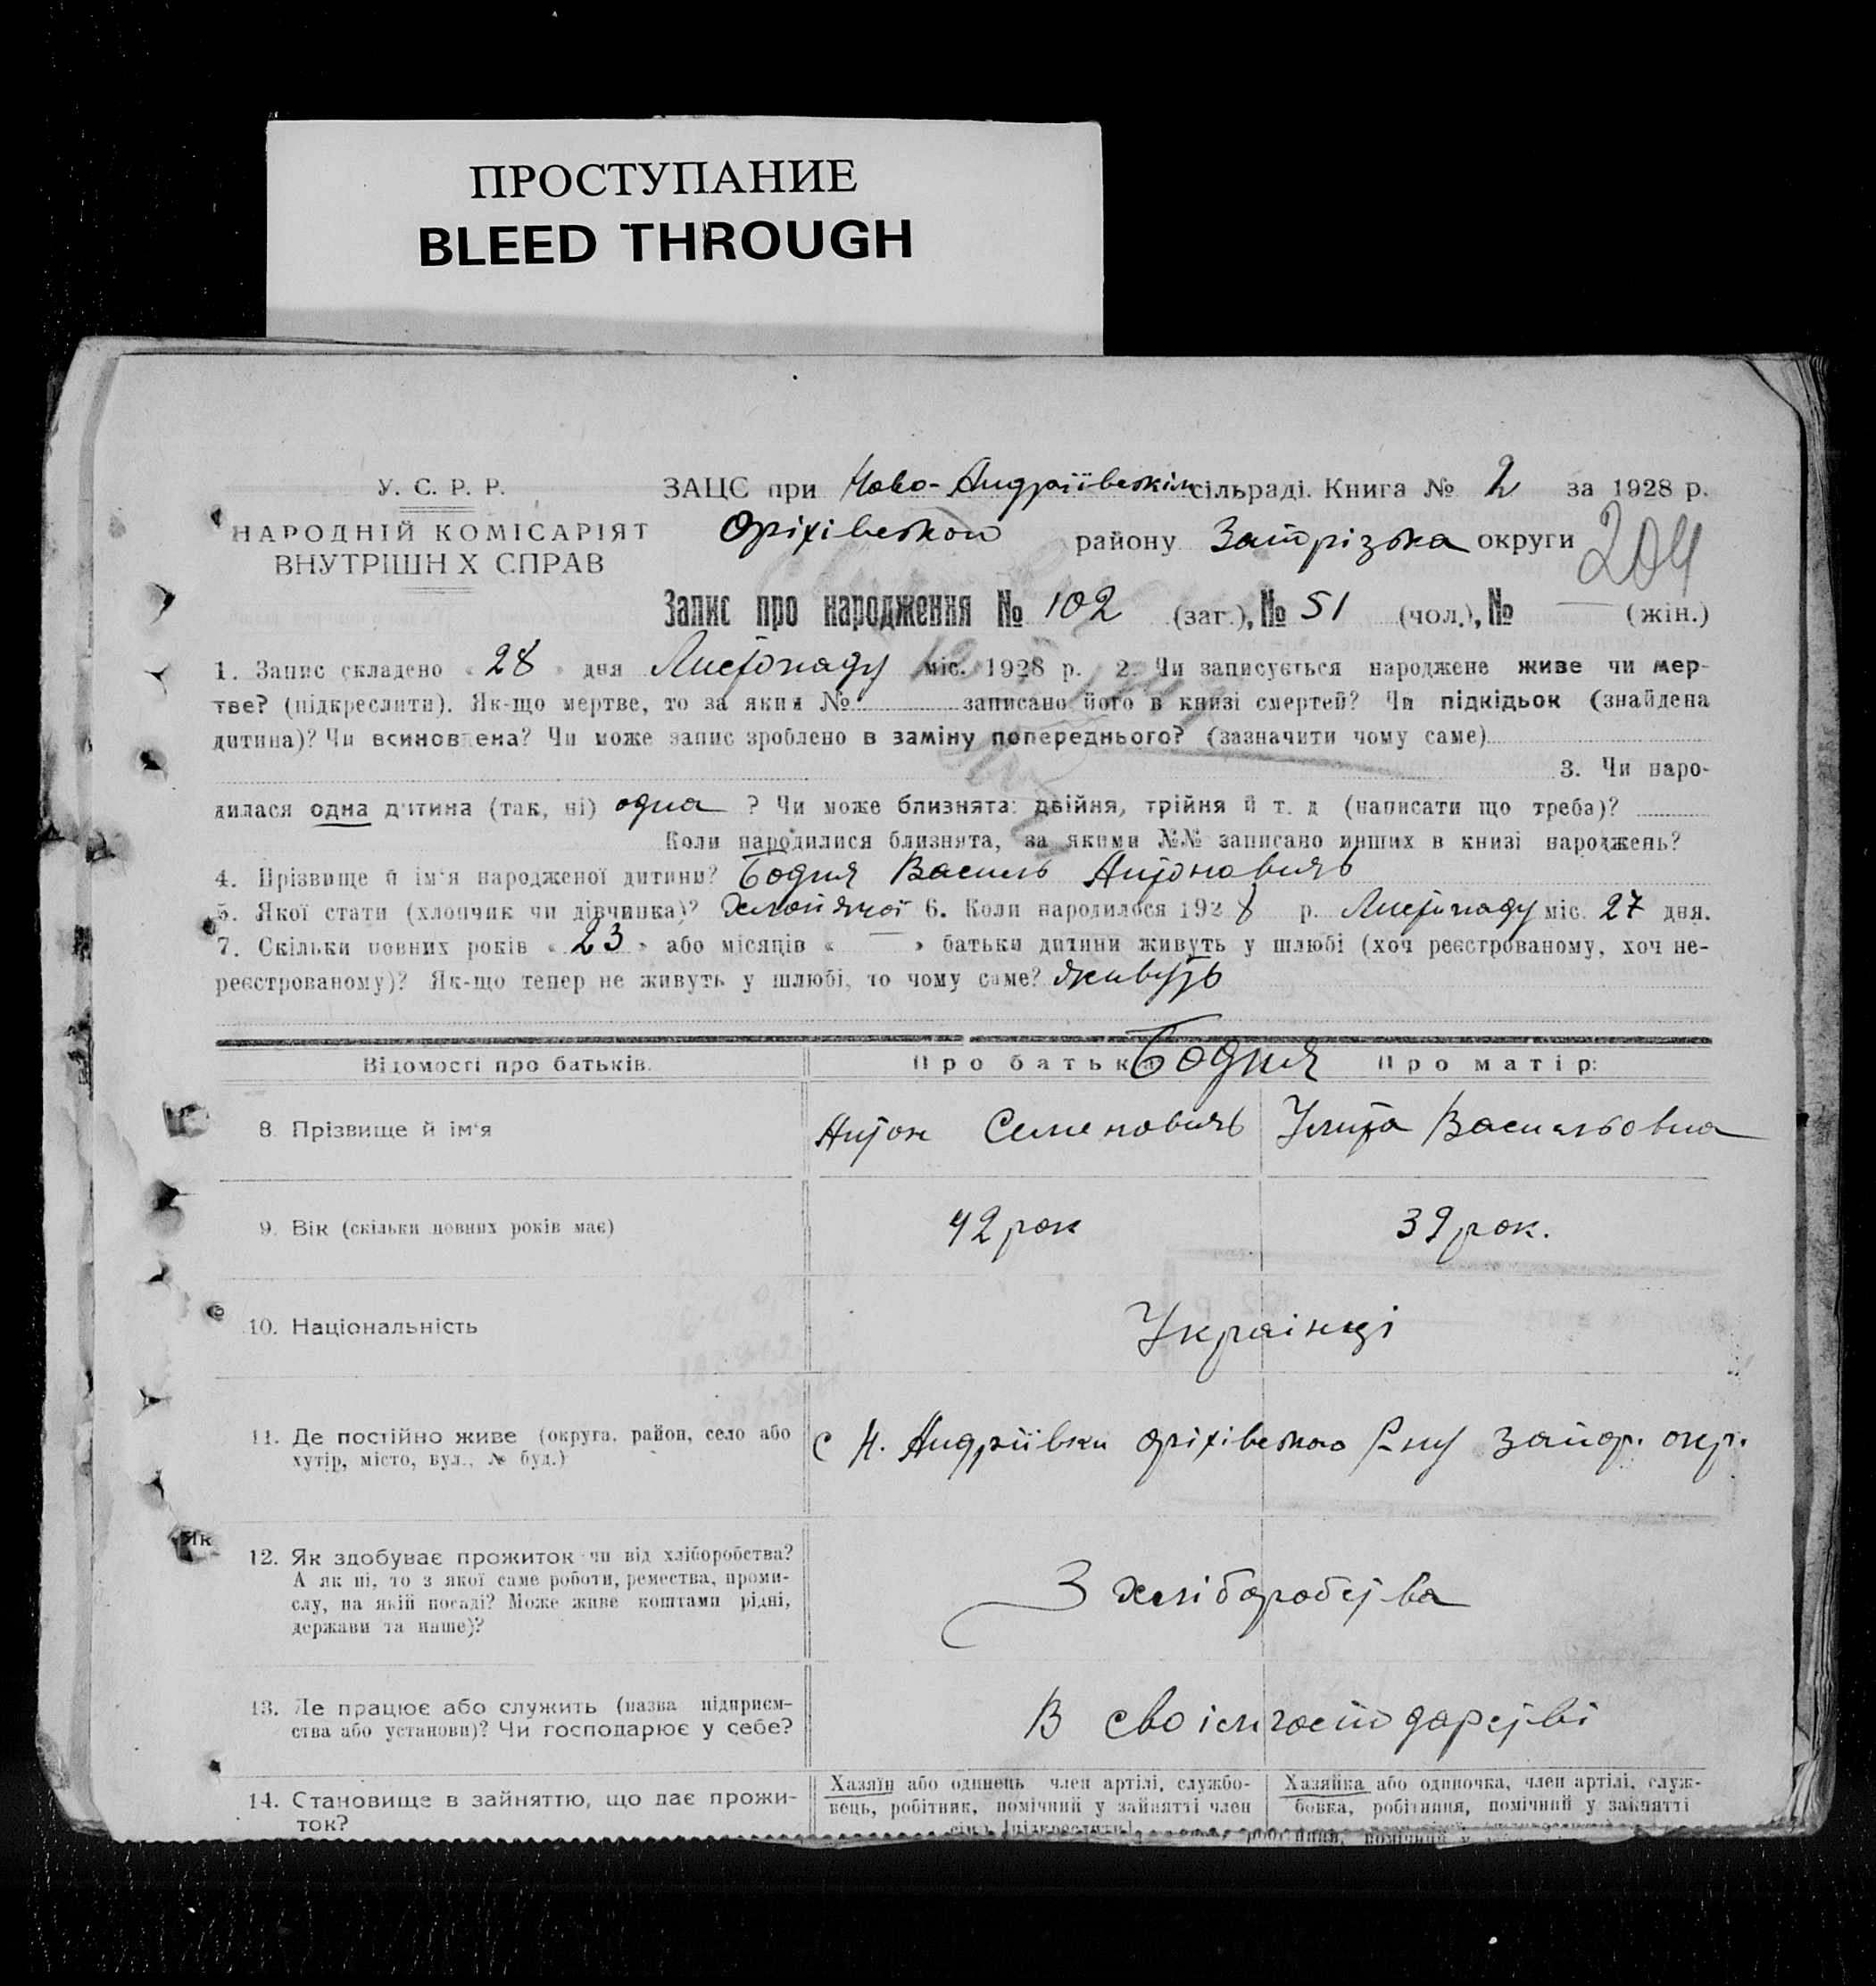 ПРОСТУПАНИЕ
BLEED THROUGH
У. С. Р. Р.
НАРОДНІЙ КОМІСАРІЯТ
ВНУТРІШН Х СПРАВ
ЗАЦС при Ново-Андріївскім сільраді. Книга № 2 за 1928 р.
Оріхівського району Запрізька округи
204
Запис про народження № 102 (заг.), № 51 (чол.), № — (жін.)
1. Запис складено « 28 » дня Листопаду міс. 1928 р. 2. Чи записується народжене живе чи мер-
тве? (підкреслити). Як-що мертве, то за яким № записано його в книзі смертей? Чи підкідьок (знайдена
дитина)? Чи всиновлена? Чи може запис зроблено в заміну попереднього? (зазначити чому саме)
3. Чи наро-
дилася одна дитина (так, ні) одна ? Чи може близнята: двійня, трійня й т. д (написати що треба)?
Коли народилися близнята, за якими №№ записано инших в книзі народжень?
4. Прізвище й ім'я народженої дитини? Бодня Василь Антоновичь
5. Якої стати (хлопчик чи дівчинка)? Хлопячої 6. Коли народилося 1928 р. Листопаду міс. 27 дня.
7. Скільки повних років « 23 » або місяців « — » батьки дитини живуть у шлюбі (хоч реєстрованому, хоч не-
реєстрованому)? Як-що тепер не живуть у шлюбі, то чому саме? живуть
Відомості про батьків. Про батька Бодня Про матір:
8. Прізвище й ім'я Антон Семеновичь Улита Васильовна
9. Вік (скільки повних років має) 42 рок 39 рок.
10. Національність Українці
11. Де постійно живе (округа, район, село або
хутір, місто, вул., № буд.)
с Н. Андріївки Оріхівського Р-ну Запор. окр.
12. Як здобуває прожиток чи від хліборобства?
А як ні, то з якої саме роботи, ремества, проми-
слу, на якій посаді? Може живе коштами рідні,
держави та инше)?
З хліборобства
13. Де працює або служить (назва підприєм-
ства або установи)? Чи господарює у себе?
В своїм господарстві
14. Становище в зайняттю, що дає прожи-
ток?
Хазяїн або одинець член артілі, службо-
вець, робітник, помічний у занятті член
Хазяйка або одиночка, член артілі, служ-
бовка, робітниця, помічний у занятті